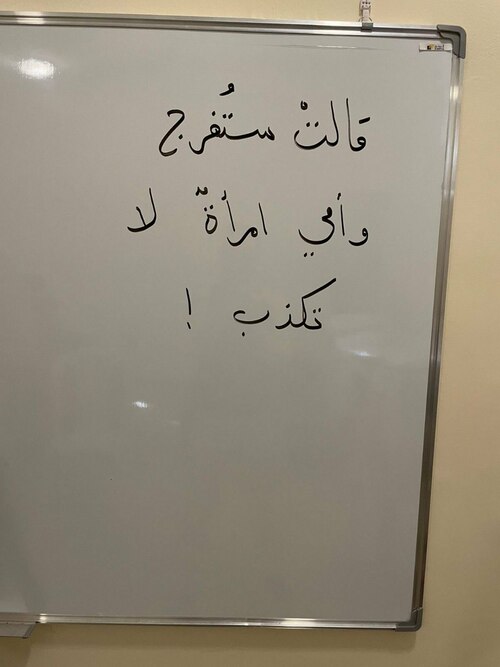 قالتْ ستُفرج
وأمي امرأةٌ لا
تكذب !